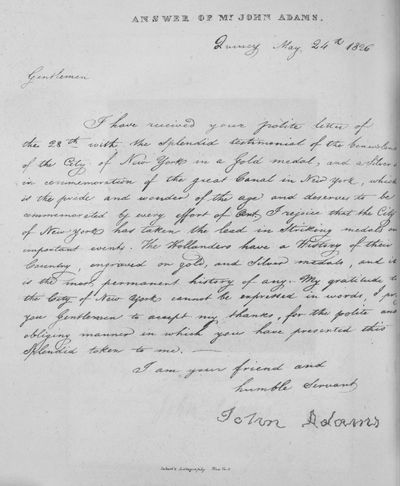 ANSWER OF Mr JOHN ADAMS.
Quincy May 24th 1826
Gentlemen
I have received your polite letter of
the 28th with the Splendid testimonial of the
of the City of New York in a Gold medal, and a Silver
in commemoration of the great Canal in New York, which
is the pride and wonder of the age and deserves to be
commemorated by every effort of Art, I rejoice that the City
of New York has taken the lead in Striking medals on
important events. The Hollanders have a History of their
Country, engraved on gold, and Silver medals, and it
is the most permanent history of any. My gratitude to
the City of New York cannot be expressed in words, I
you Gentlemen to accept my thanks, for the polite and
obliging manner in which you have presented this
Splendid token to me. —
I am your friend and
humble Servant
John Adams
Imbert's Lithography New York